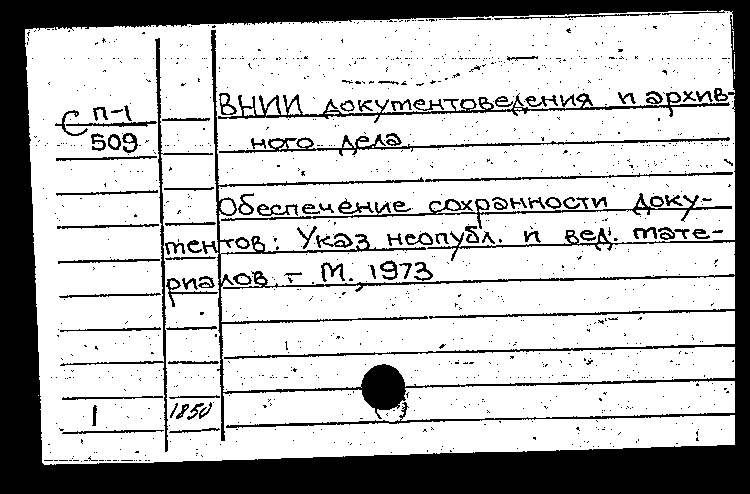 С П-1
509
ВНИИ документоведения и архив-
ного дела
Обеспечение сохранности доку-
ментов: Указ неопубл. и вед. мате-
риалов. - М., 1973
1 1850